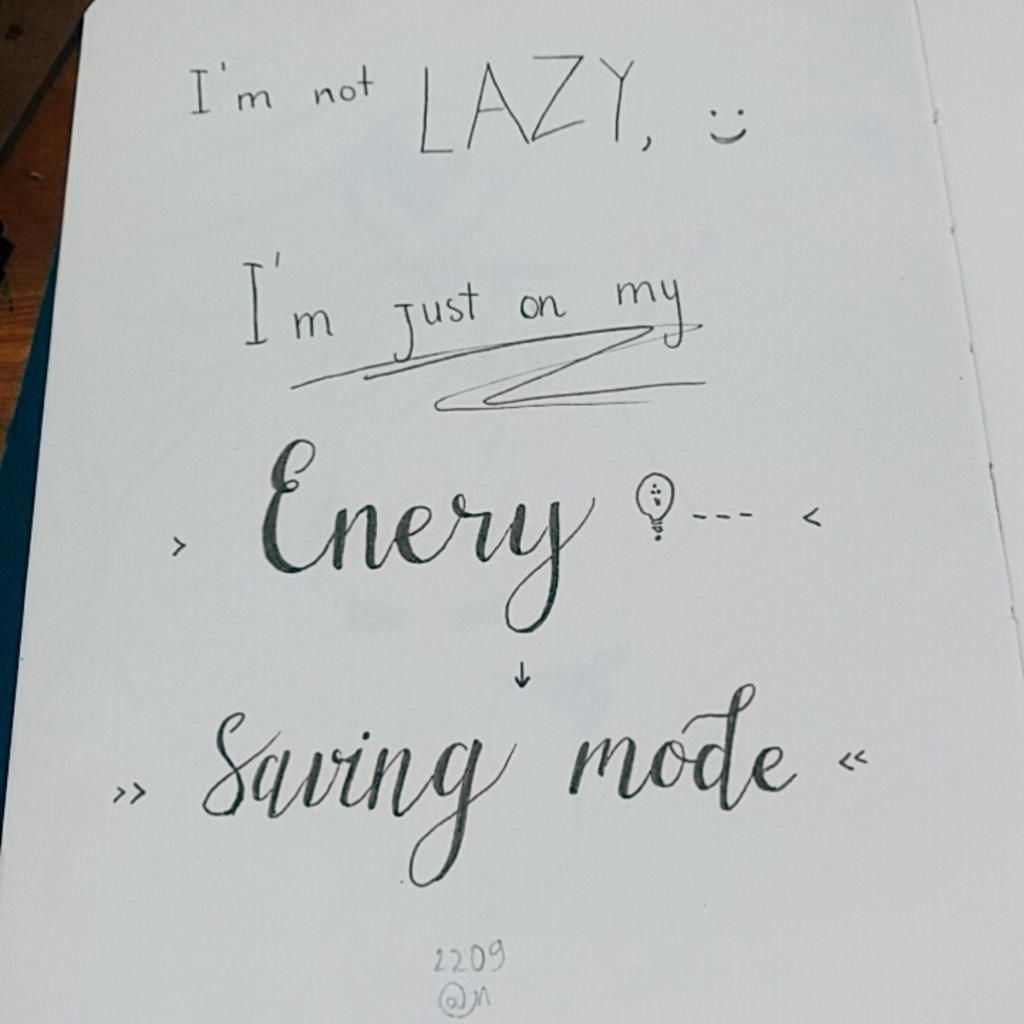 I'm not LAZY, :)
I'm just on my
> Enery --- <
↓
>> Saving mode <<
2209
@n